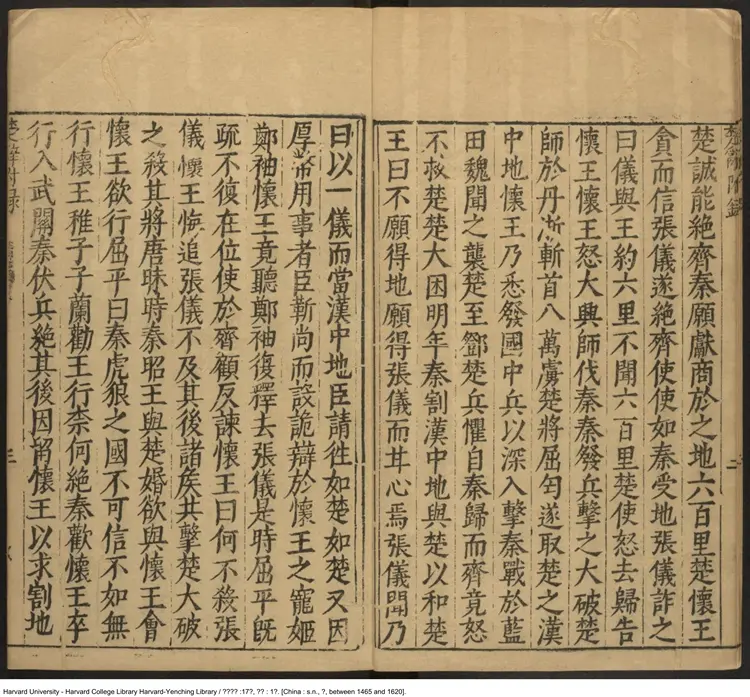 楚辭附錄
楚誠能絶齊秦願獻商於之地六百里楚懷王
貪而信張儀遂絶齊使使如秦受地張儀詐之
曰儀與王約六里不聞六百里楚使怒去歸告
懷王懷王怒大興師伐秦秦發兵擊之大破楚
師於丹淅斬首八萬虜楚將屈匄遂取楚之漢
中地懷王乃悉發國中兵以深入擊秦戰於藍
田魏聞之襲楚至鄧楚兵懼自秦歸而齊竟怒
不救楚楚大困明年秦割漢中地與楚以和楚
王曰不願得地願得張儀而甘心焉張儀聞乃
曰以一儀而當漢中地臣請徃如楚如楚又因
厚幣用事者臣靳尚而設詭辯於懷王之寵姬
鄭袖懷王竟聽鄭袖復釋去張儀是時屈平旣
疏不復在位使於齊顧反諫懷王曰何不殺張
儀懷王悔追張儀不及其後諸矦共擊楚大破
之殺其將唐昧時秦昭王與楚婚欲與懷王會
懷王欲行屈平曰秦虎狼之國不可信不如無
行懷王稚子子蘭勸王行柰何絶秦歡懷王卒
行入武關秦伏兵絶其後因留懷王以求割地
楚辭附录
三
Harvard University - Harvard College Library Harvard-Yenching Library / ???? :17?, ?? : 1?. [China : s.n., ?, between 1465 and 1620].